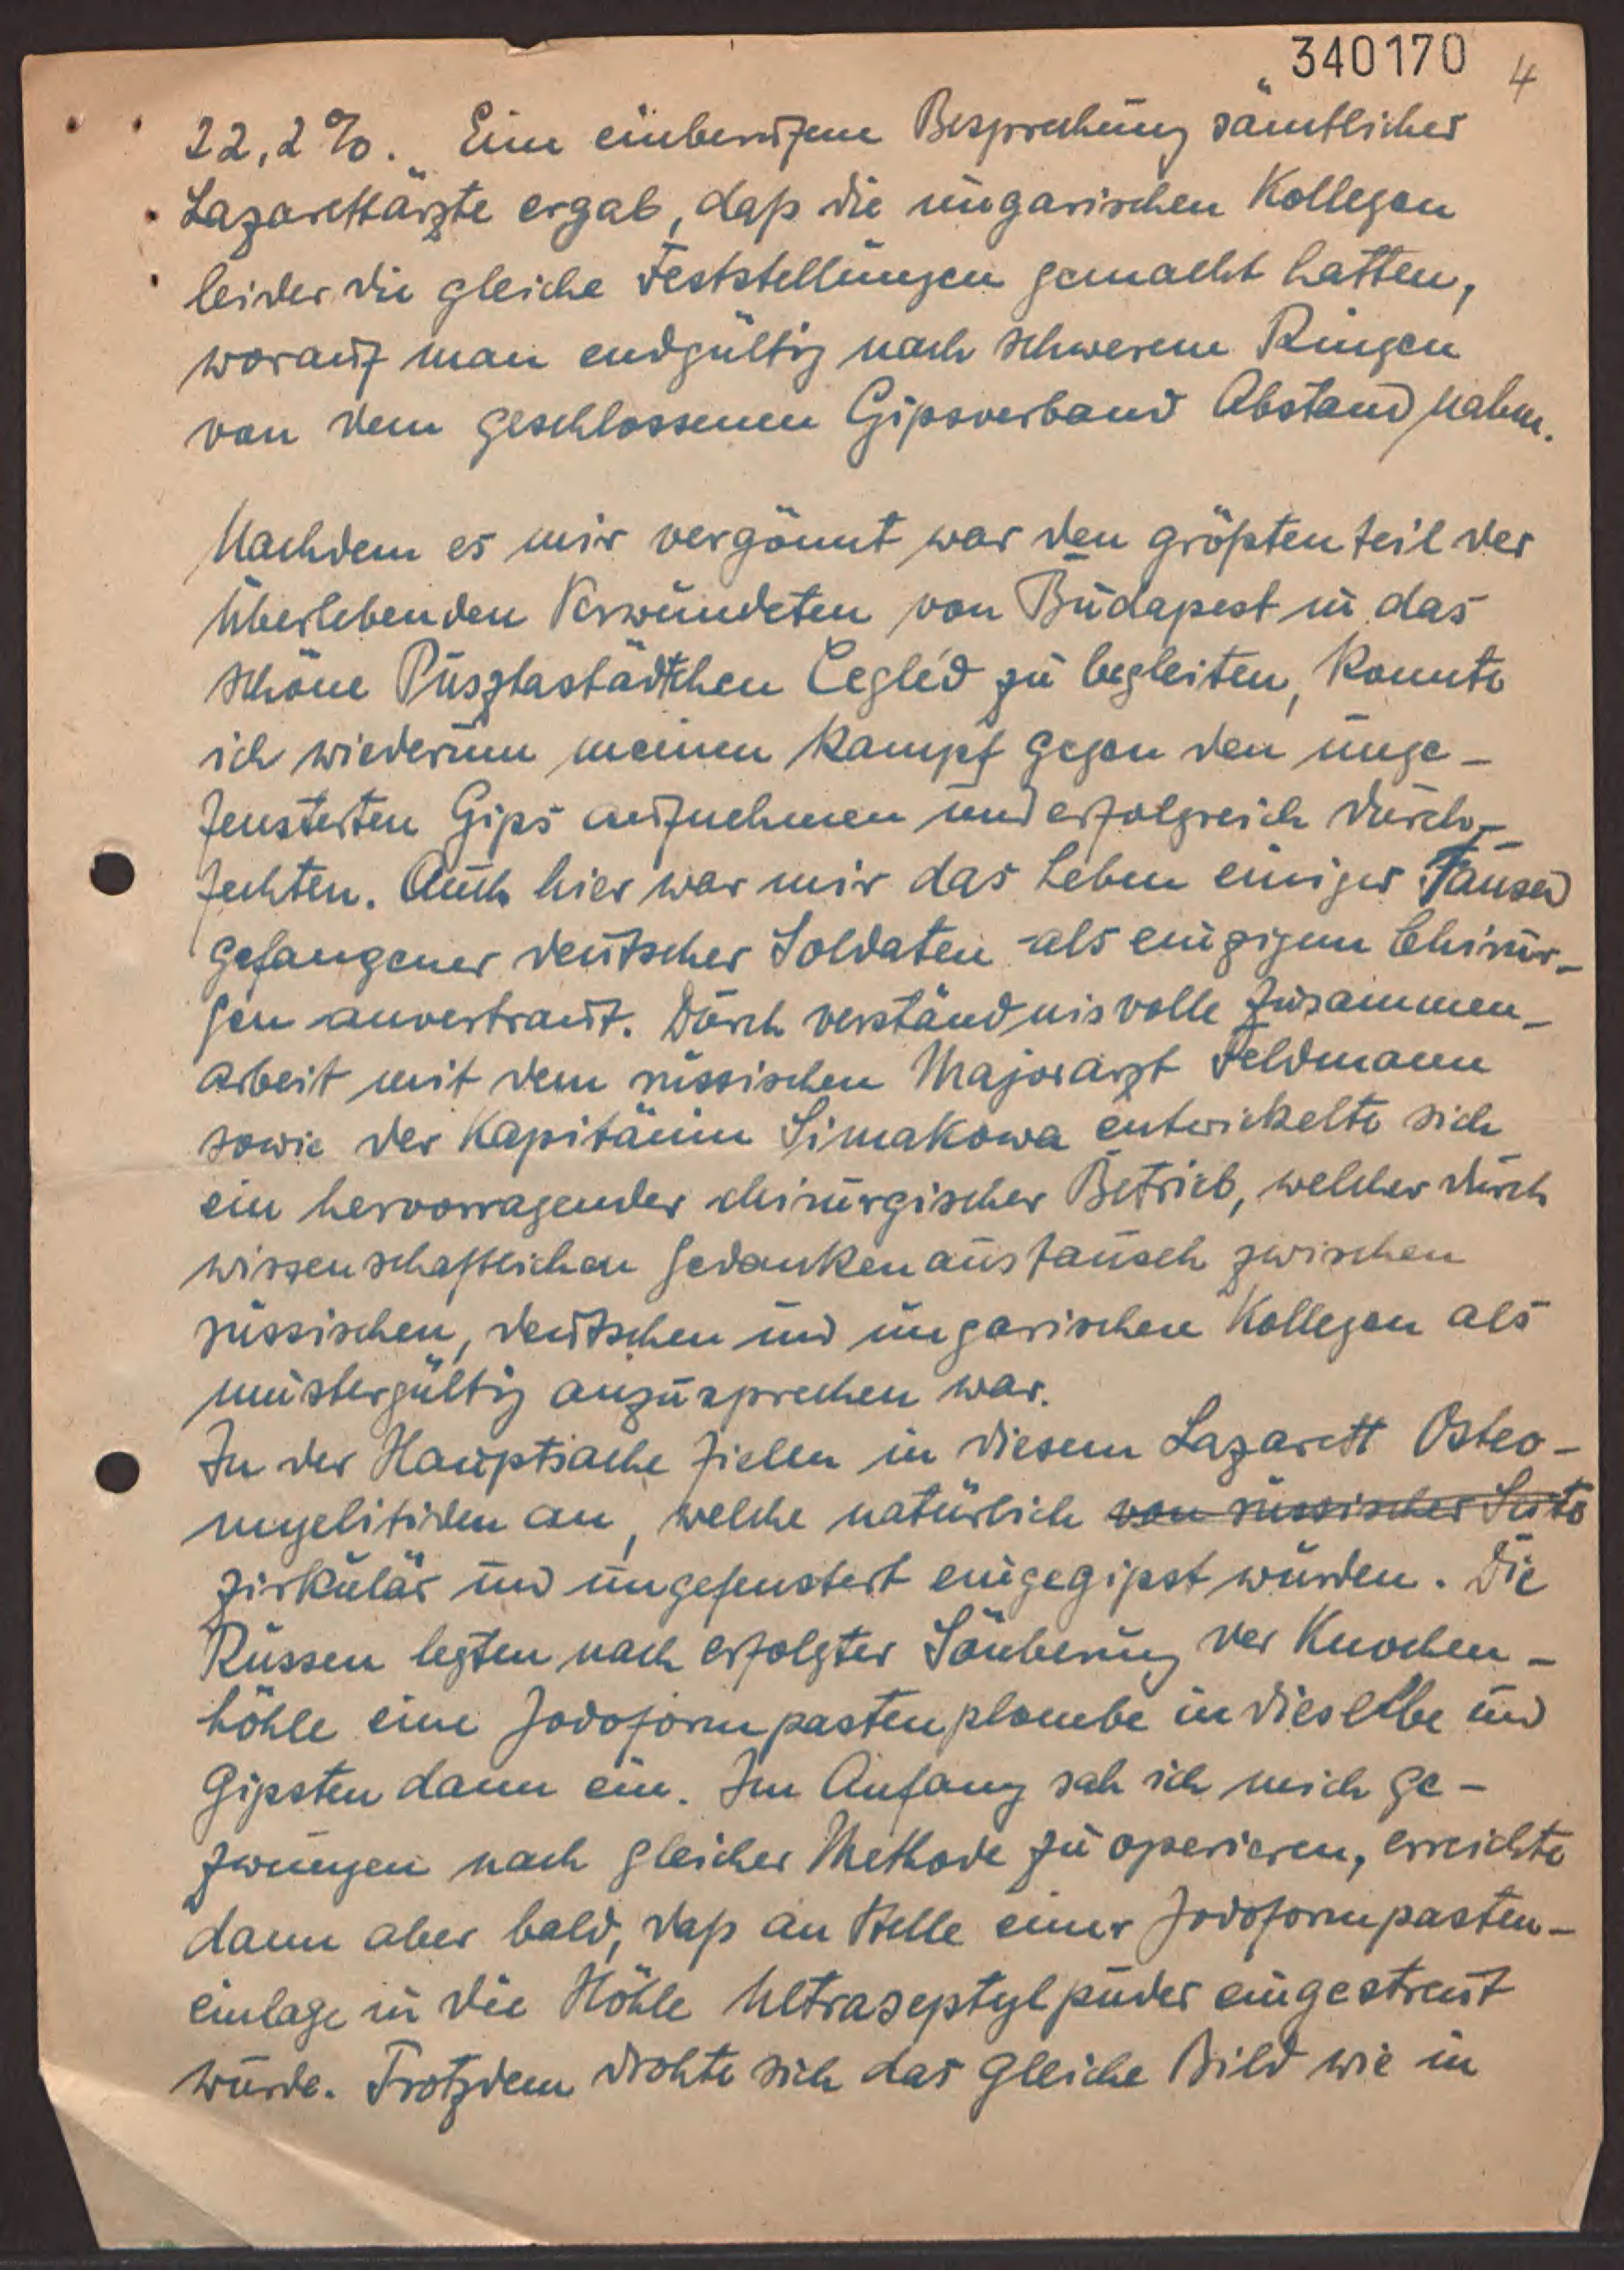 340170 4
22,2%. Eine einberufene Besprechung sämtlicher
Lazarettärzte ergab, daß die ungarischen Kollegen
leider die gleiche Feststellungen gemacht hatten,
worauf man endgültig nach schwerem Ringen
von dem geschlossenen Gipsverband Abstand nahm.
Nachdem es mir vergönnt war den größten teil der
Überlebenden Verwundeten von Budapest in das
schöne Pusztastädtchen Cegléd zu begleiten, konnte
ich wiederum meinen Kampf gegen den unge-
fensterten Gips aufnehmen und erfolgreich durch-
fechten. Auch hier war mir das Leben einiger Tausend
gefangener deutscher Soldaten als einzigem Chirur-
gen anvertraut. Durch verständnisvolle Zusammen-
arbeit mit dem russischen Majorarzt Feldmann
sowie der Kapitänin Simakowa entwickelte sich
ein hervorragender chirurgischer Betrieb, welcher durch
wissenschaftlichen Gedankenaustausch zwischen
russischen, deutschen und ungarischen Kollegen als
mustergültig anzusprechen war.
In der Hauptsache fielen in diesem Lazarett Osteo-
myelitiden an, welche natürlich von russischer Seite
zirkulär und ungefenstert eingegipst wurden. Die
Russen legten nach erfolgter Säuberung der Knochen-
höhle eine Jodoformpastenplombe in dieselbe und
Gipsten dann ein. Im Anfang sah ich mich ge-
zwungen nach gleicher Methode zu operieren, erreichte
dann aber bald, daß an Stelle einer Jodoformpasten-
einlage in die Höhle Ultraseptylpuder eingestreut
wurde. Trotzdem drohte sich das gleiche Bild wie in